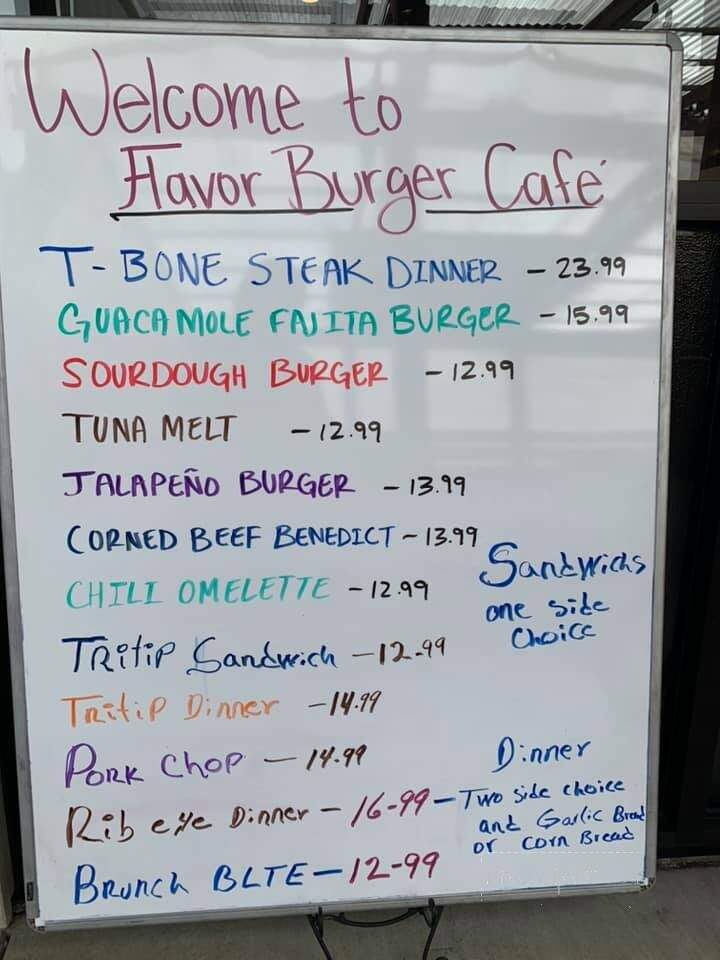 Welcome to
Flavor Burger Café
T-BONE STEAK DINNER - 23.99
GUACAMOLE FAJITA BURGER - 15.99
SOURDOUGH BURGER - 12.99
TUNA MELT - 12.99
JALAPEÑO BURGER - 13.99
CORNED BEEF BENEDICT - 13.99
CHILI OMELETTE - 12.99
Sandwichs
one side
Choice
TRitiP Sandwich - 12.99
TRitiP Dinner - 14.99
PORK CHOP - 14.99
Dinner
Rib eye Dinner - 16-99 - Two side choice
and Garlic Bread
or Corn Bread
Brunch BLTE - 12-99